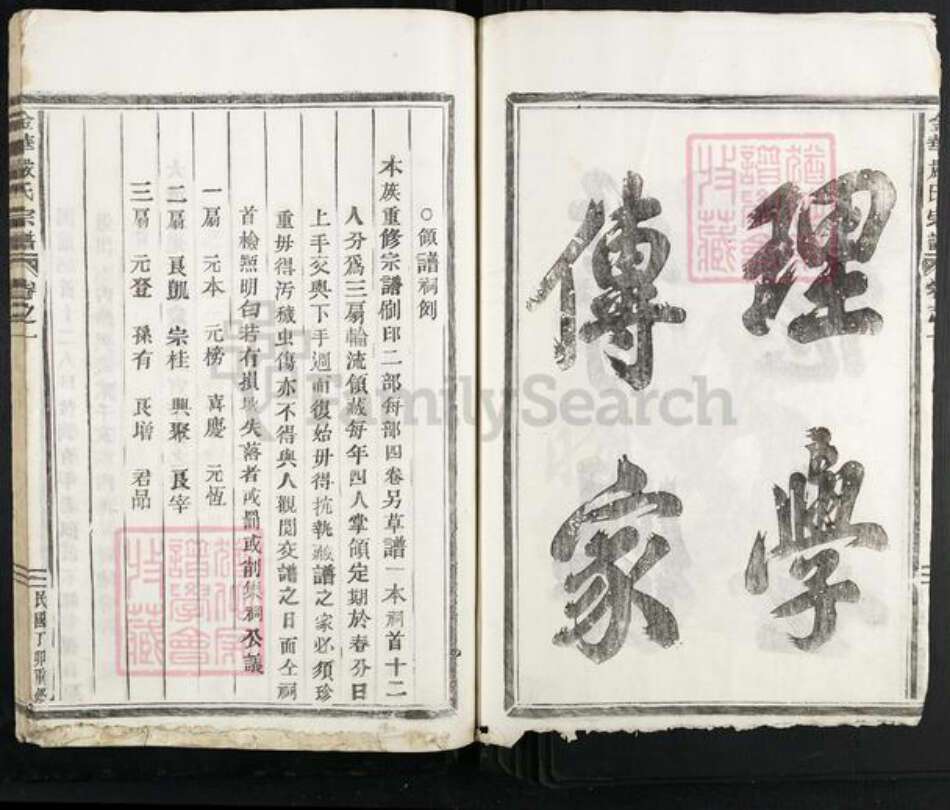 理學
傳家
金華嚴氏宗譜
卷之一
○領譜祠例
本族重修宗譜刷印二部每部四卷另草譜一本祠首十二
人分為三扇輪流領藏每年四人掌領定期於春分日
上手交與下手週而復始毋得抗執藏譜之家必須珍
重毋得污穢虫傷亦不得與人觀閱交譜之日面仝祠
首檢點明白若有損壞失落者或罰或削集祠公議
一扇 元本 元榜 喜慶 元恆
二扇 良凱 宗桂 興聚 良宰
三扇 元登 孫有 良增 君品
民國丁卯重修
FamilySearch
譜學會
收藏